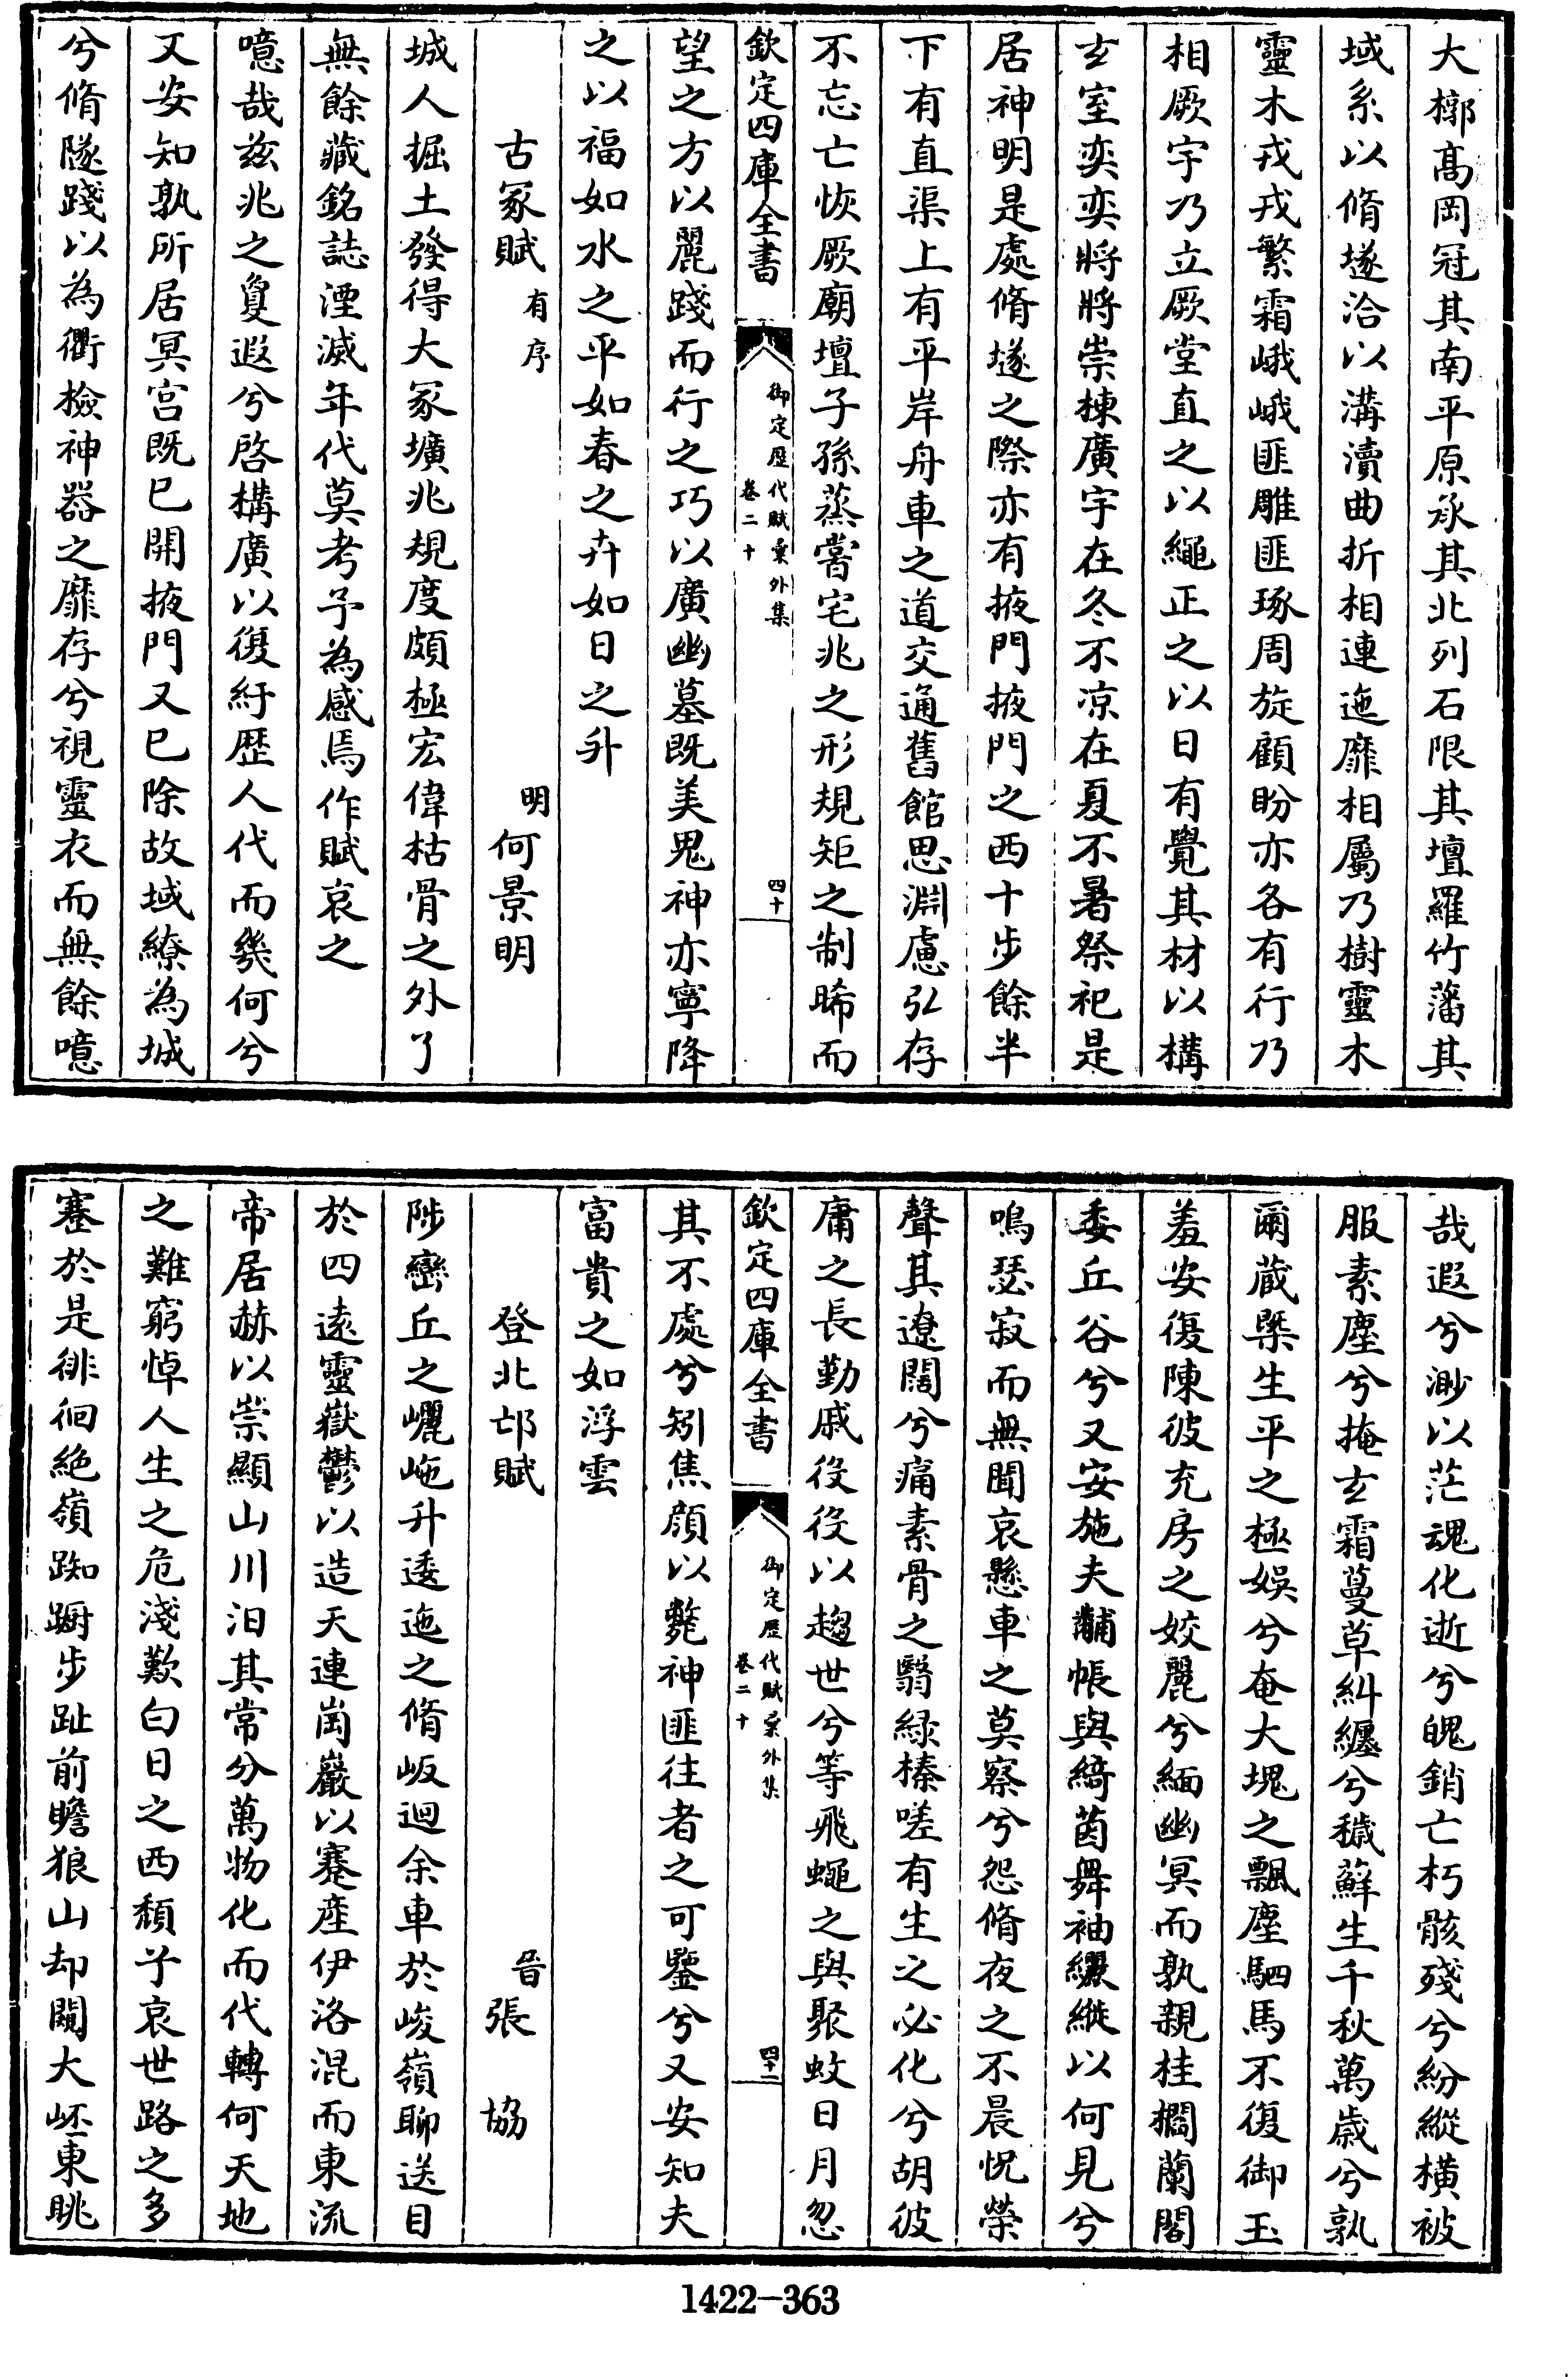 大槨髙岡冠其南平原承其北列石限其壇羅竹藩其
域系以脩墜洽以溝瀆曲折相連迤靡相屬乃樹靈木
靈木戎戎繁霜峨峨匪雕匪琢周旋顧盼亦各有行乃
相厥宇乃立厥堂直之以繩正之以日有覺其材以構
玄室奕奕將將崇棟廣宇在冬不凉在夏不暑祭祀是
居神明是處脩墜之際亦有掖門掖門之西十步餘半
下有直渠上有平岸舟車之道交通舊館思淵慮弘存
不忘亡恢厥廟壇子孫蒸嘗宅兆之形規矩之制晞而
欽定四庫全書
御定歴代賦彚外集
卷二十
四十
望之方以麗踐而行之巧以廣幽墓既美鬼神亦寧降
之以福如水之平如春之卉如日之升
古冢賦 有序 明 何景明
城人掘土發得大冢壙兆規度頗極宏偉枯骨之外了
無餘藏銘誌湮滅年代莫考予為感焉作賦哀之
噫哉兹兆之敻遐兮啓構廣以復紆歴人代而幾何兮
又安知孰所居冥宫既已開掖門又已除故域繚為城
兮脩隧踐以為衢檢神器之靡存兮視靈衣而無餘噫
哉遐兮渺以茫魂化逝兮魄銷亡朽骸殘兮紛縱橫被
服素塵兮掩玄霜蔓草糾纏兮穢蘚生千秋萬歳兮孰
爾蔵槩生平之極娛兮奄大塊之飄塵駟馬不復御玉
羞安復陳彼充房之姣麗兮緬幽冥而孰親桂櫩蘭閣
委丘谷兮又安施夫黼帳與綺茵舞袖纚縰以何見兮
鳴瑟寂而無聞哀懸車之莫察兮怨脩夜之不晨怳榮
聲其遼闊兮痛素骨之翳緑榛嗟有生之必化兮胡彼
庸之長勤戚役役以趨世兮等飛蠅之與聚蚊日月忽
欽定四庫全書
御定歴代賦彚外集
卷二十
四十一
其不處兮矧焦顔以斃神匪往者之可鑒兮又安知夫
富貴之如浮雲
登北邙賦 晉 張協
陟巒丘之㠠崺升逶迤之脩岅迴余車於峻嶺聊送目
於四遠靈嶽鬱以造天連崗巖以蹇産伊洛混而東流
帝居赫以崇顯山川汨其常分萬物化而代轉何天地
之難窮悼人生之危淺歎白日之西頽兮哀世路之多
蹇於是徘徊絶嶺踟蹰步趾前瞻狼山却闚大岯東眺
1422-363